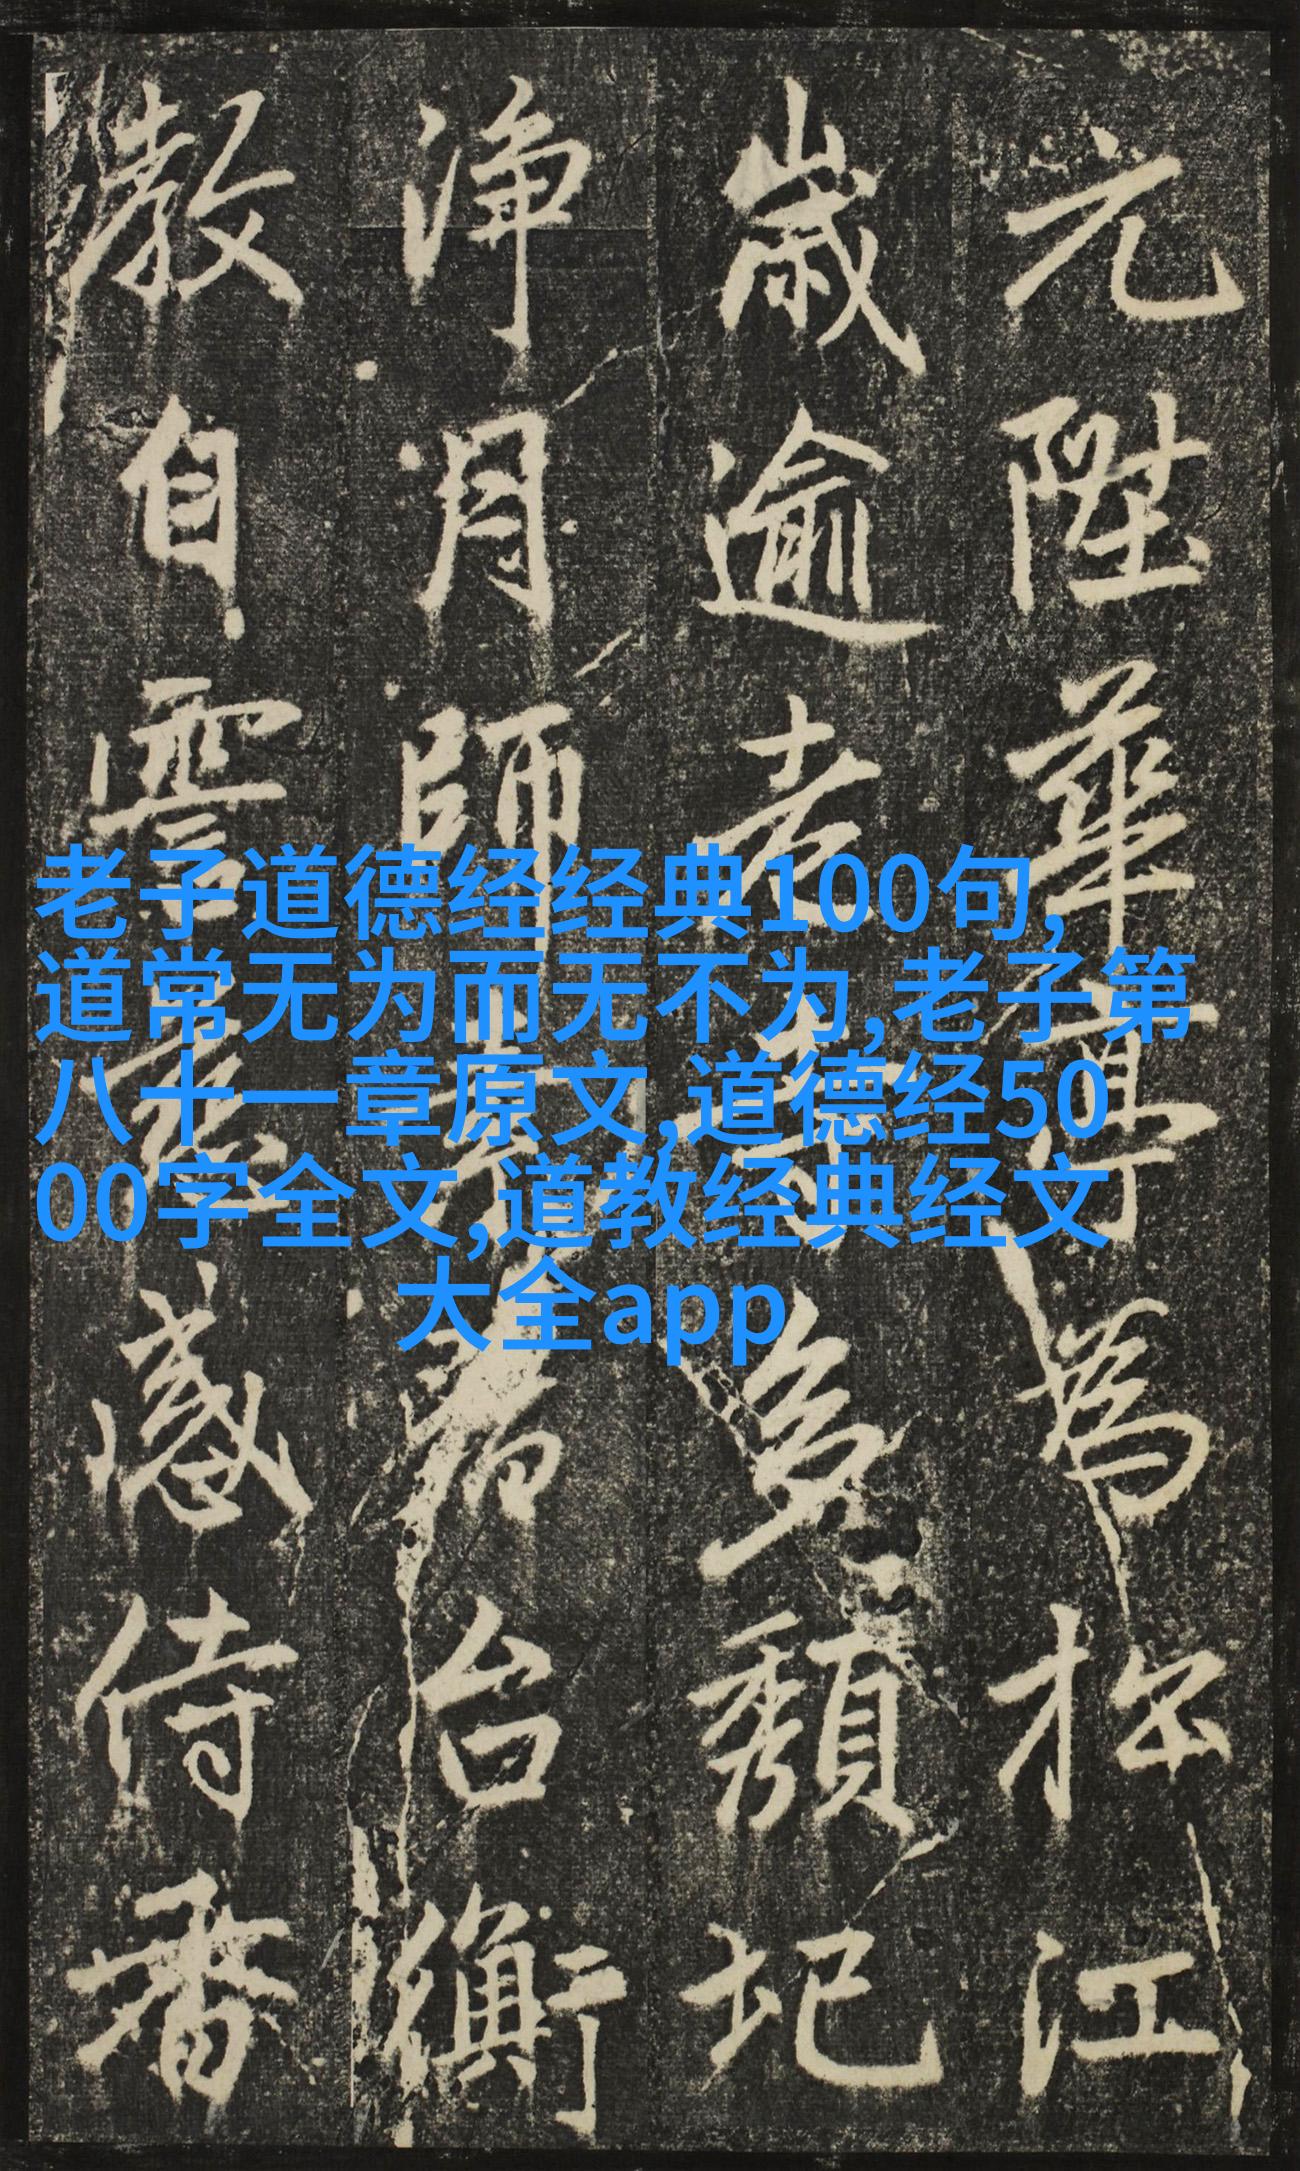 元陞華亭爲松江
歲逾老多頹圯
淨月師台衡
教自雲感侍香
老子道德经经典100句,
道常无为而无不为,老子第
八十一章原文,道德经50
00字全文,道教经典经文
大全app